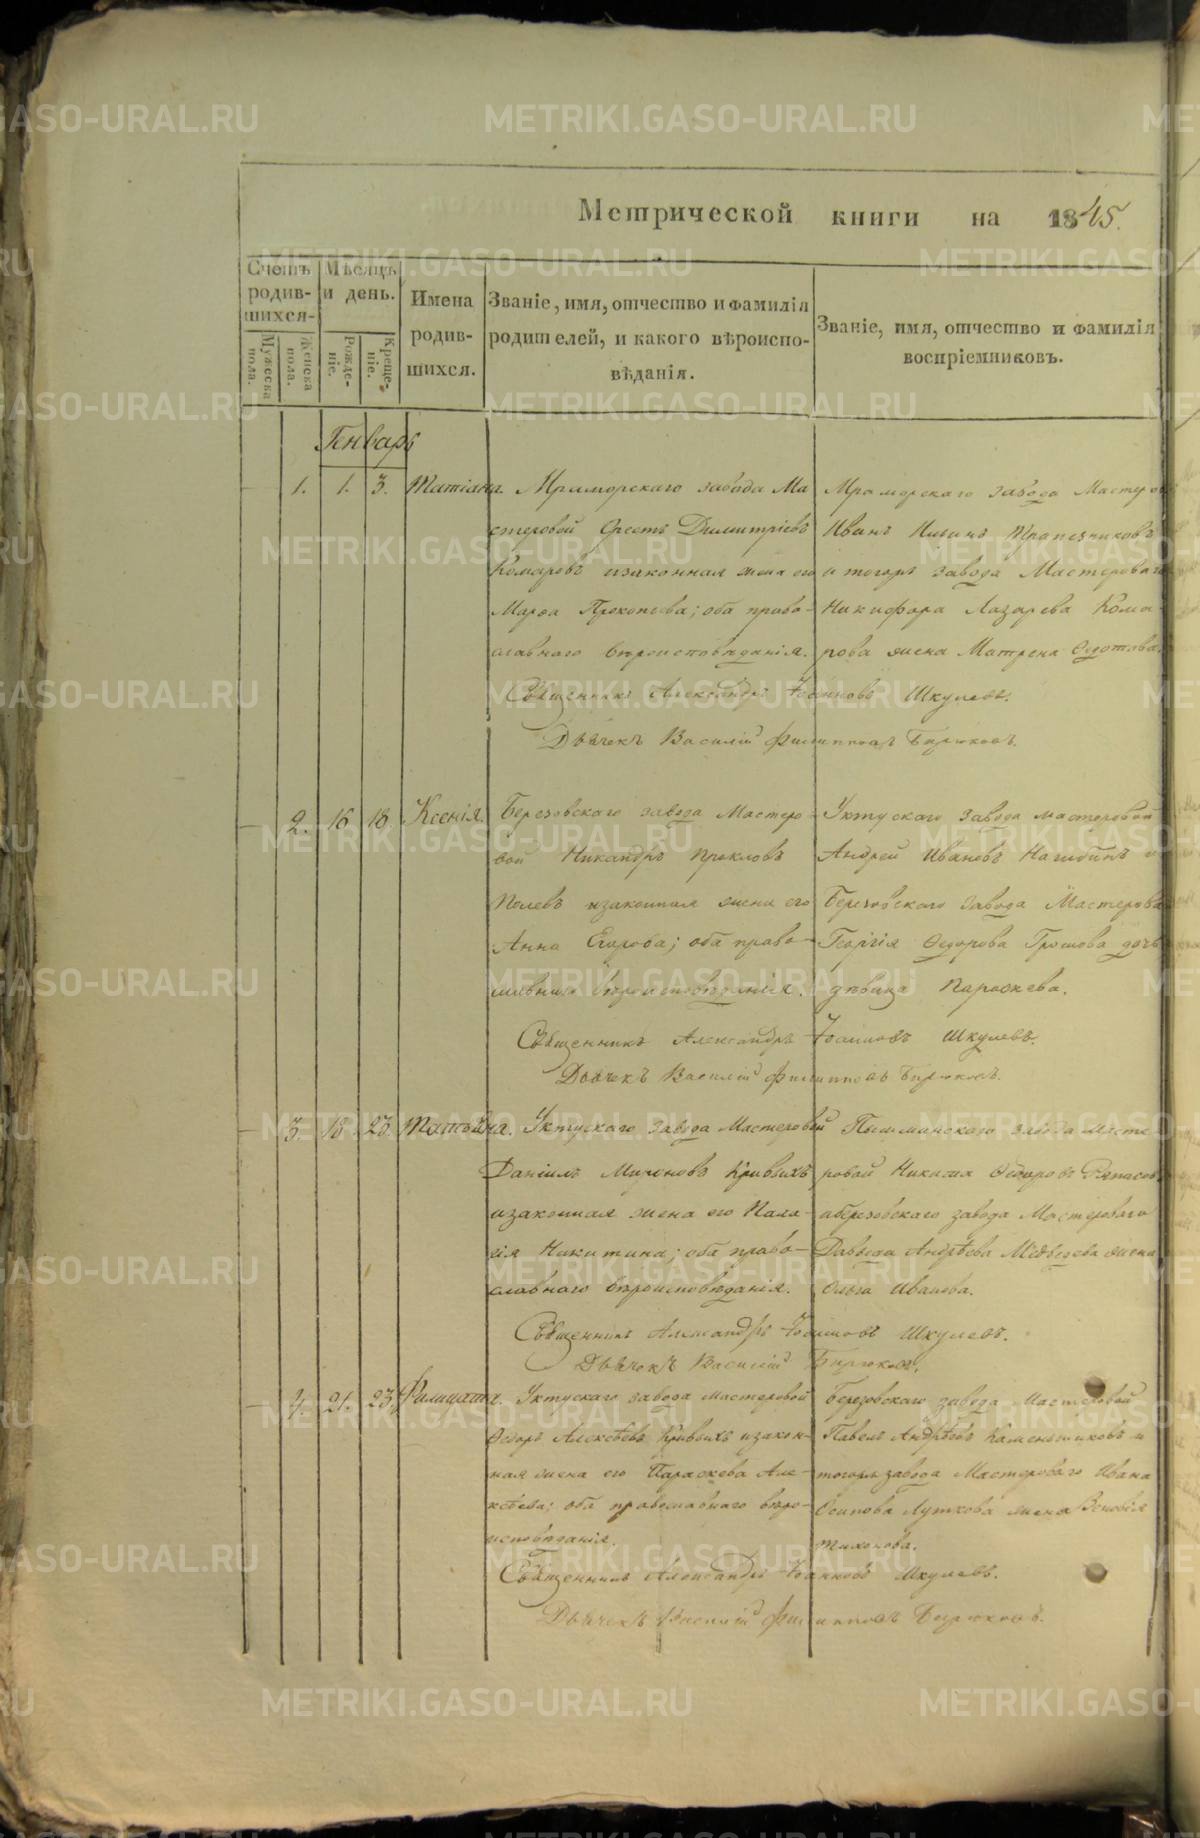 Метрической книги на 1845.
Счетъ родив-шихся.
Мужеска пола.
Женска пола.
Мѣсяцъ и день.
Рожде-ніе.
Креще-ніе.
Имена родив-шихся.
Званіе, имя, отчество и фамилія родителей, и какого вѣроиспо-вѣданія.
Званіе, имя, отчество и фамилія воспріемниковъ.
Генварь
1. 1. 3. Татіана.
Мраморскаго завода Ма
стеровой Орестъ Димитріевъ
Комаровъ изаконная жена его
Марѳа Прокопьева; оба право-
славнаго вѣроисповѣданія.
Мраморскаго завода Мастеров
Иванъ Ильинъ Трапезниковъ
и тогожъ завода Мастероваго
Никифора Лазарева Кома-
рова жена Матрена Ѳедотова.
Священникъ Александръ Іоанновъ Шкулевъ.
Дьячекъ Василій Филипповъ Бирюковъ.
2. 16 18. Ксенія.
Березовскаго завода Мастеро-
вой Никандръ Прокловъ
Полевъ изаконная жена его
Анна Егорова; оба право-
славнаго вѣроисповѣданія.
Уктускаго завода мастеровой
Андрей Ивановъ Нагибинъ и
Березовскаго завода Мастерова
Георгія Ѳедорова Грошова дочь
дѣвица Параскева.
Священникъ Александръ Іоанновъ Шкулевъ.
Дьячекъ Василій Филипповъ Бирюковъ.
3. 18. 23. Татьяна.
Уктускаго завода Мастеровой
Даніилъ Мироновъ Кривыхъ
изаконная жена его Пела-
гія Никитина; оба право-
славнаго вѣроисповѣданія.
Пышминскаго завода Масте-
ровой Никита Ѳедоровъ
аберезовскаго завода Мастероваго
Давыда Андрѣева Медвѣдева жена
Ольга Иванова.
Священникъ Александръ Іоанновъ Шкулевъ.
Дьячекъ Василій Бирюковъ.
4. 21. 23. Филицата.
Уктускаго завода мастеровой
Ѳедоръ Алексѣевъ Кривыхъ изакон-
ная жена его Параскева Але-
ксѣева; оба православнаго вѣро-
исповѣданія.
Березовскаго завода Мастеровой
Павелъ Андрѣевъ Каменьщиковъ и
тогожъ завода Мастероваго Ивана
Осипова Луткова жена Зеновія
Тихонова.
Священникъ Александръ Іоанновъ Шкулевъ.
Дьячекъ Василій Филипповъ Бирюковъ.
METRIKI.GASO-URAL.RU